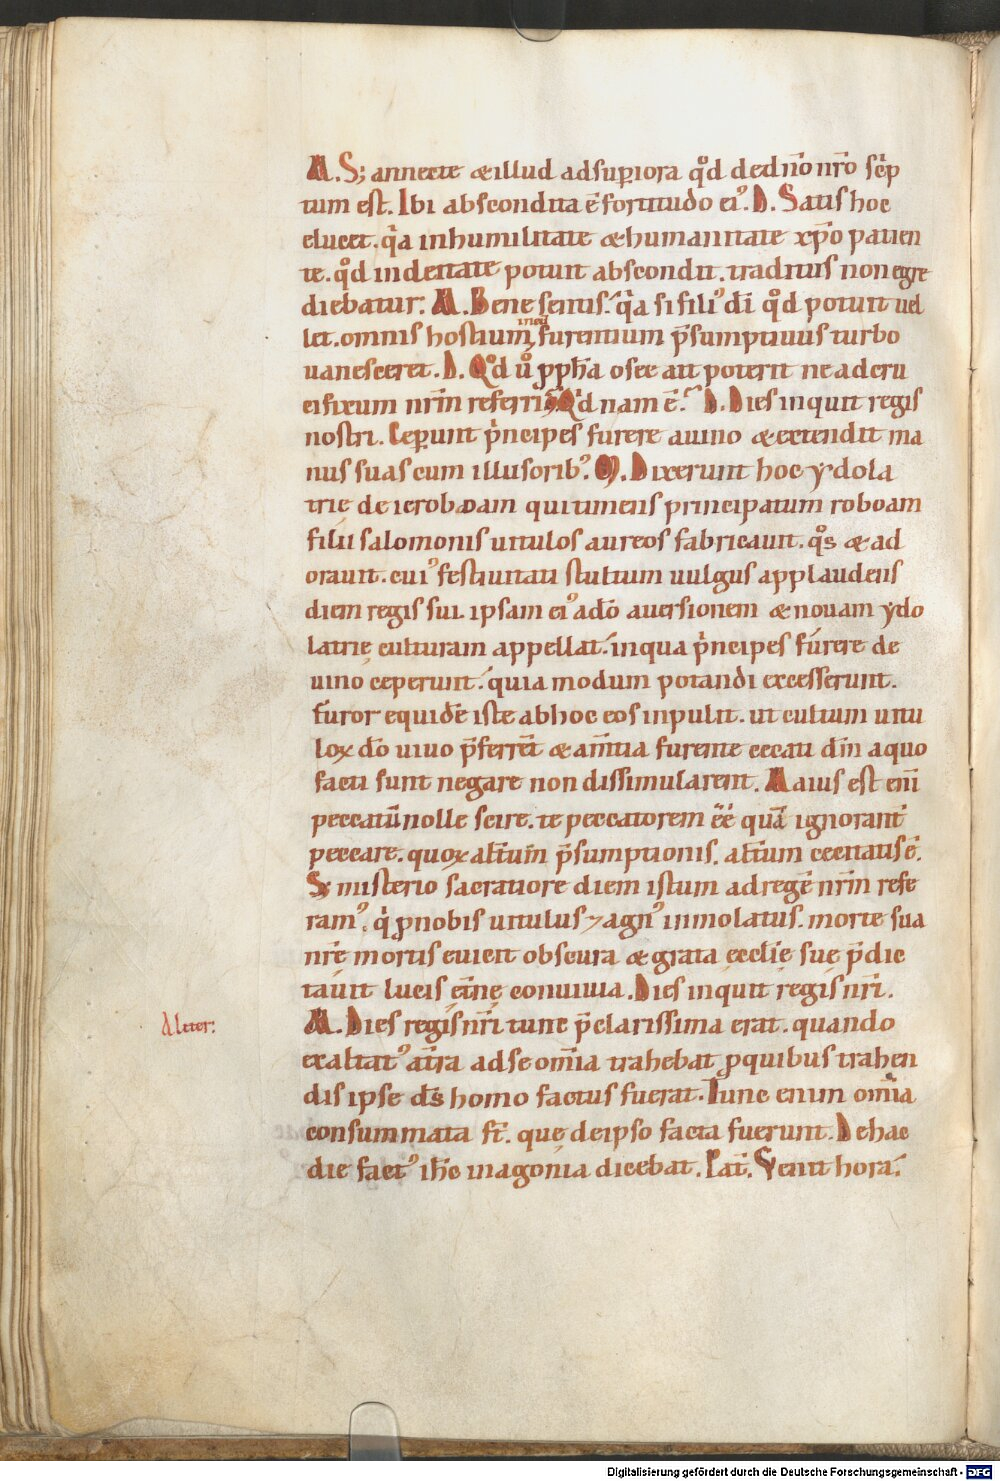 A. S; annecte & illud ad supiora qd de dño nr̃o sc̃p
tum est. Ibi abscondita ẽ fortitudo ei'. D. Satis hoc
elucet. qia in humilitate & humanitate xp̃o patien
te. qd in deitate potuit abscondit. traditus non egre
diebatur. M. Bene sentis. qia si fili' dĩ qd potuit uel
let. omnis hostium in eũ furentium p̃sumptiuus turbo
uanesceret. D. Qd ũ pph̃a osee ait poterit ne ad cru
cifixum nr̃m referri; M. Qd nam ẽ. D. Dies inquit regis
nostri. Ceperunt pincipes furere a uino & extendit ma
nus suas cum illusorib'. M. Dixerunt hoc ydola
trię de ieroboam qui timens principatum roboam
filii salomonis uitulos aureos fabricauit. qos & ad
orauit. cui' festiuitati stultum uulgus applaudens
diem regis sui. ipsam ei' a dõ auersionem & nouam ydo
latrię culturam appellat. in qua pincipes furere de
uino ceperunt. quia modum potandi excesserunt.
furor equidẽ iste ab hoc eos inpulit. ut cultum uitu
loꝝ dõ uiuo p̃ferrẽt & am̃tia furente cecati dñm a quo
facti sunt negare non dissimularent. Maius est eni
peccatũ nolle scire. te peccatorem eẽ quã ignorant
peccare. quoꝝ alt̃um p̃sumptionis. alt̃um cecitatis ẽ.
S; misterio sacratiore diem istum ad regẽ nr̃m refe
ram'. qi p nobis uitulus 7 agn' inmolatus. morte sua
nr̃ę mortis euicit obscura & grata ęcclię suę p̃dic
tauit lucis ęt̃nę conuiuia. Dies inquit regis nr̃i.
Aliter:
M. Dies regis nr̃i tunc p̃clarissima erat. quando
exaltat' a t̃ra ad se om̃ia trahebat p quibus trahen
dis ipse d̃s homo factus fuerat. Tunc enim om̃ia
consummata st̃. quę de ipso facta fuerunt. De hac
die fact' ihc̃ in agonia dicebat. Pat̃. Venit hora.
Digitalisierung gefördert durch die Deutsche Forschungsgemeinschaft - DFG